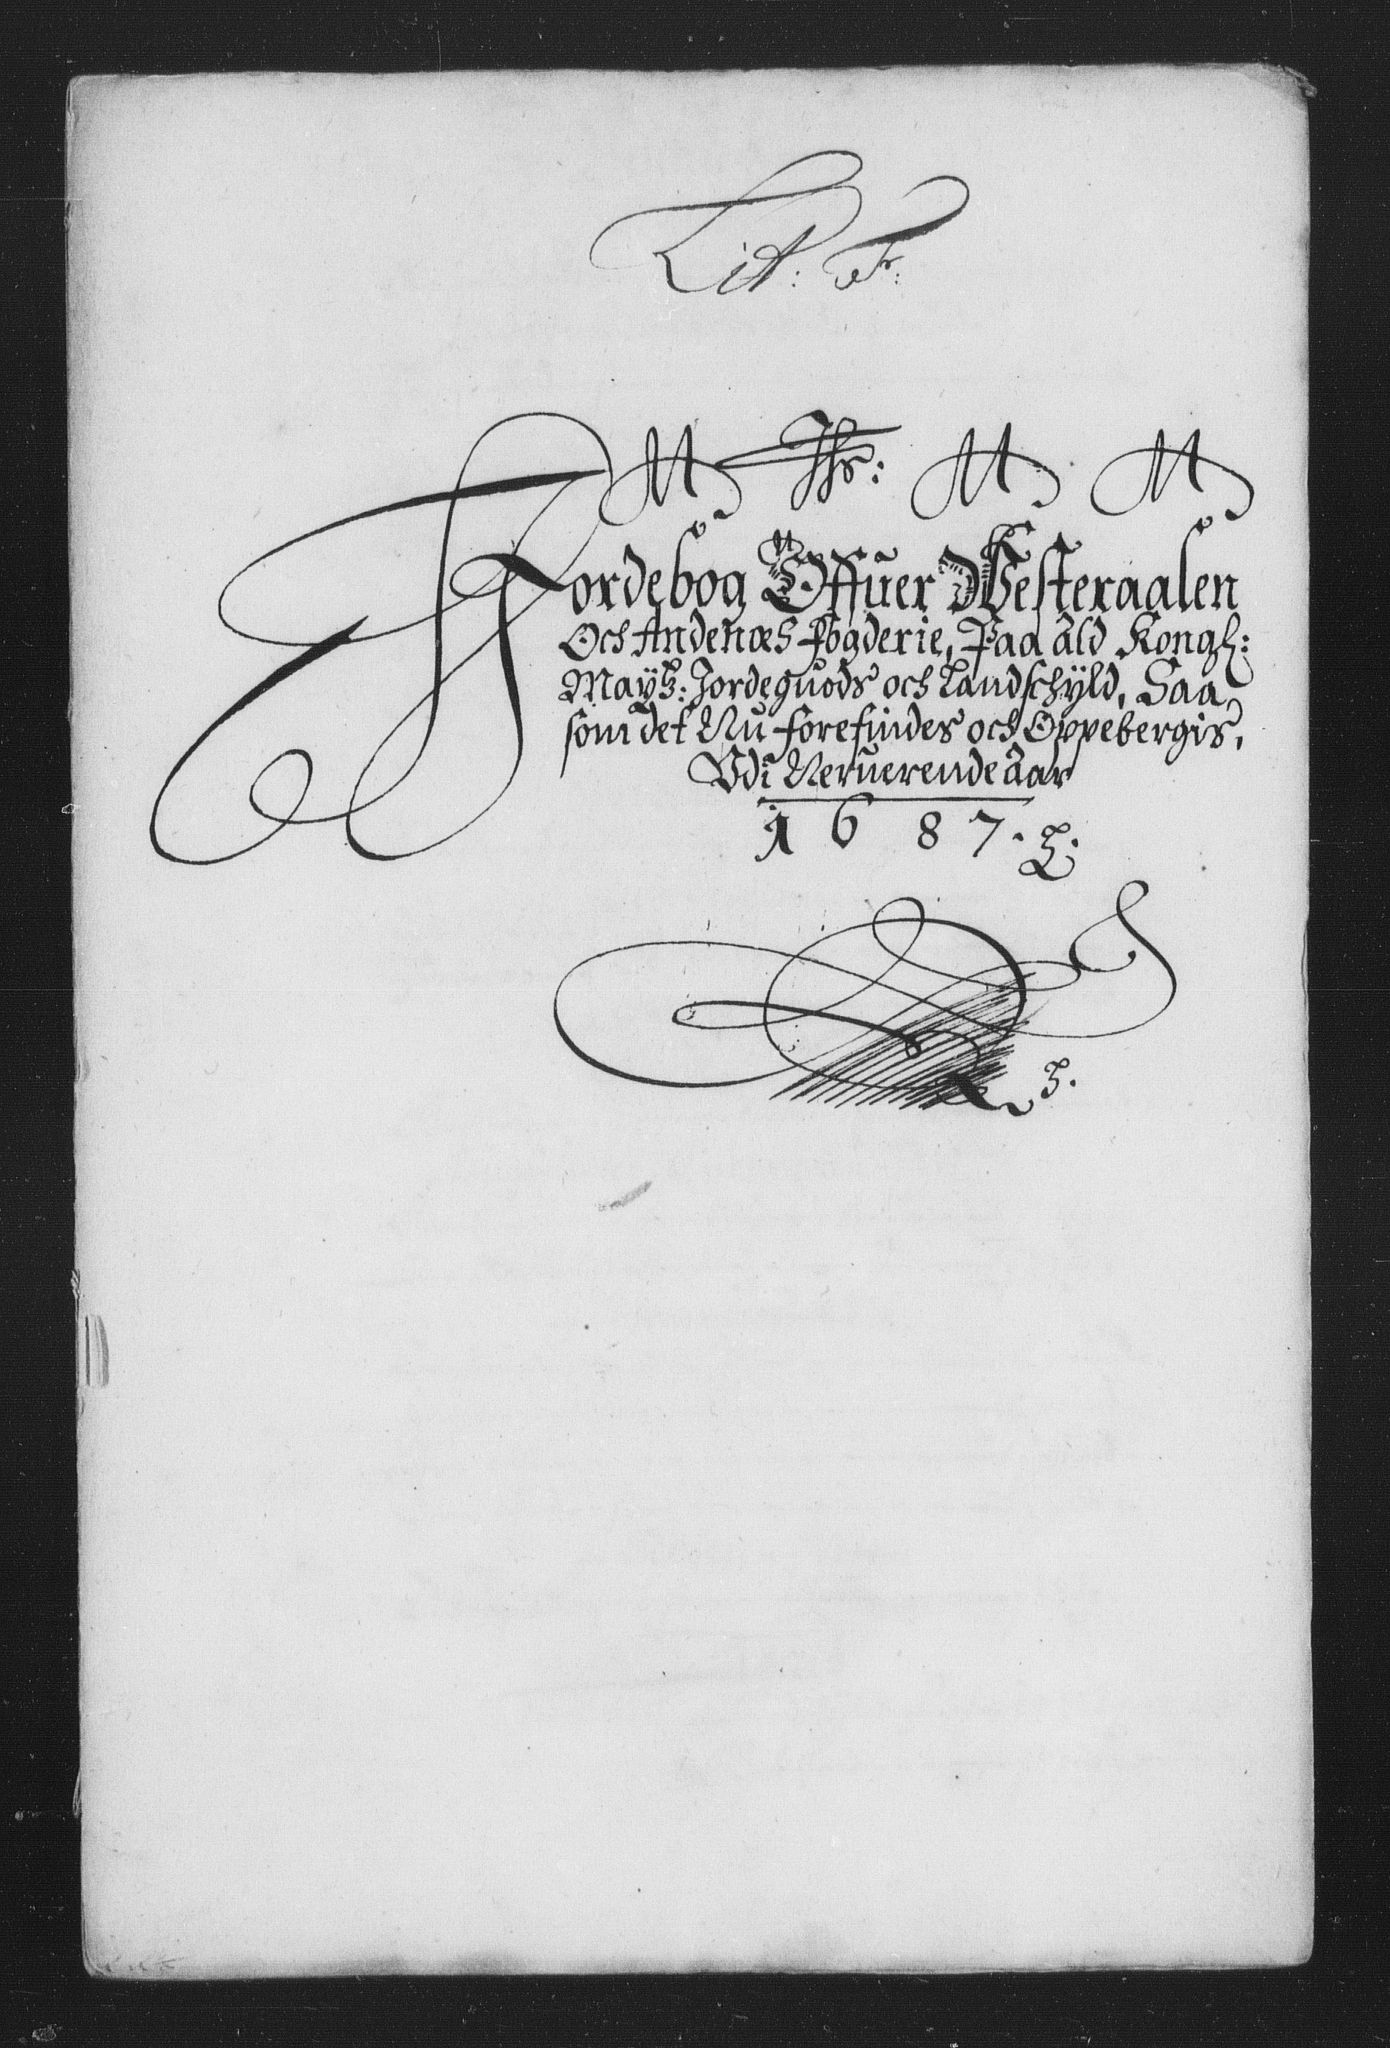 Lit: F:
Jordebog Offuer Westeraalen
Och Andenæs fogderie, Paa ald Kongl:
Mayts: Jordeguods och Landschÿld, Saa
som det Nu forefindes och Oppebergis,
Udi Neruerende Aar
1687.